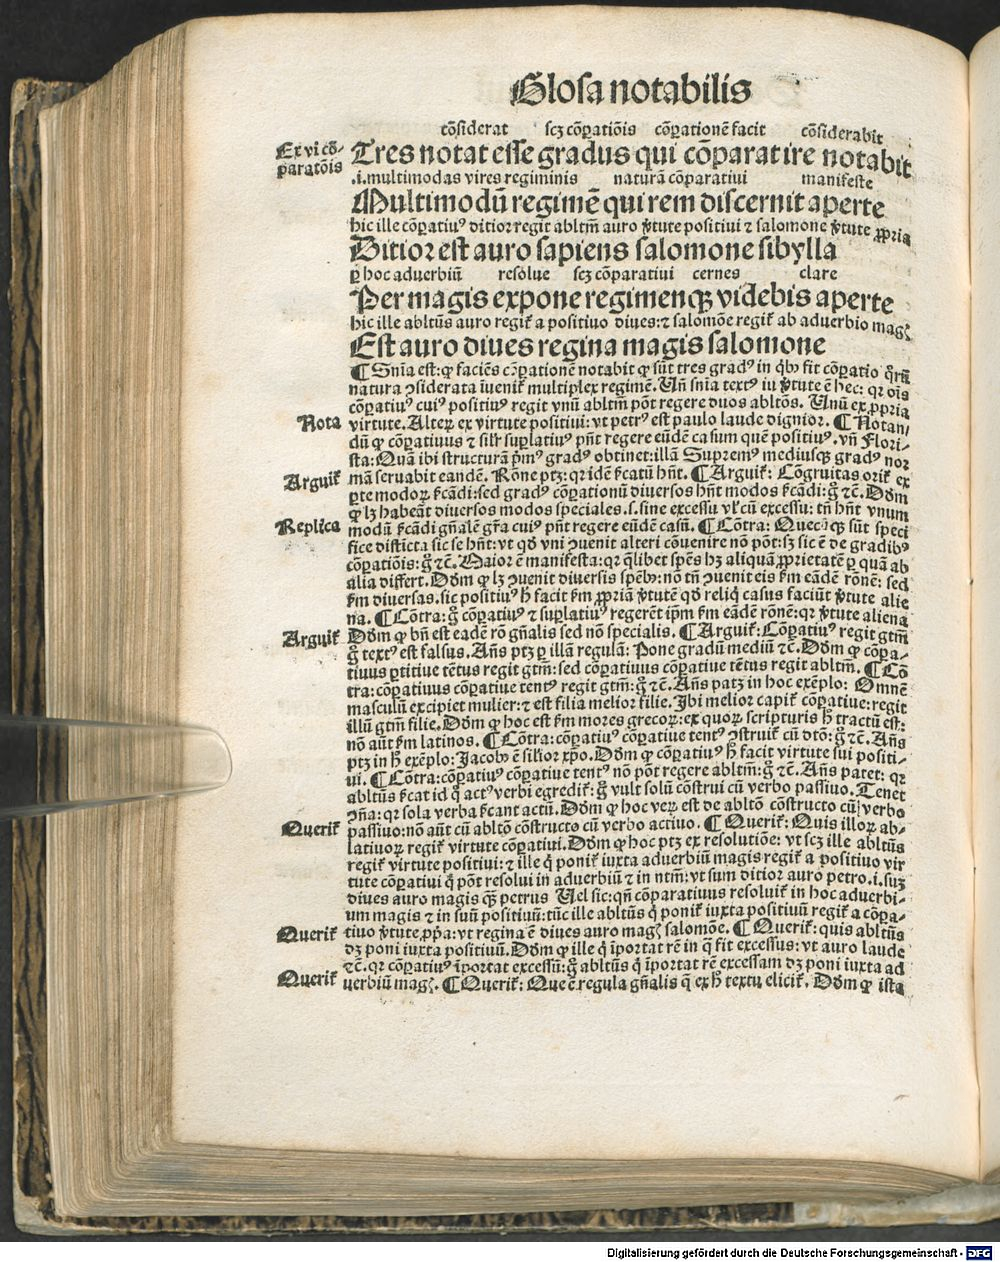 Glosa notabilis
cōsiderat scʒ cōꝑatiōis cōꝑationē facit cōsiderabit
Ex vi cō-
paratōis
Tres notat esse gradus qui cōparat ire notabit
.i. multimodas vires regiminis naturā cōparatiui manifeste
Multimodū regimē qui rem discernit aperte
hic ille cōꝑatiuꝰ ditior regit abltm̄ auro v̄tute positiui ⁊ salomone v̄tute ꝓpria
Ditior est auro sapiens salomone sibylla
ꝑ hoc aduerbiū resolue scʒ cōparatiui cernes clare
Per magis expone regimenqꝫ videbis aperte
hic ille abltūs auro regit᷑ a positiuo diues: ⁊ salomōe regit᷑ ab aduerbio magꝭ
Est auro diues regina magis salomone
¶ Snīa est: ꝙ faciēs cōꝑationē notabit ꝙ sūt tres gradꝰ in qͥbꝰ fit cōꝑatio qͦꝝ
natura ↄsiderata īuenit᷑ multiplex regimē. Un̄ snīa textꝰ in v̄tute ē hec: qꝛ oīs
cōꝑatiuꝰ cuiꝰ positiuꝰ regit vnū abltm̄ pōt regere duos abltōs. Unū ex ꝓpria
Nota
virtute. Alteꝝ ex virtute positiui: vt petrꝰ est paulo laude dignior. ¶ Notan/
dū ꝙ cōꝑatiuus ⁊ silr̄ suꝑlatiuꝰ pn̄t regere eūdē casum quē positiuꝰ. vn̄ Flori-
sta: Quā ibi structurā pͥmꝰ gradꝰ obtinet: illā Supremꝰ mediusqꝫ gradꝰ nor
Arguit᷑
mā seruabit eandē. Rōne ptꝫ: qꝛ idē sīcatū hn̄t. ¶ Arguit᷑: Cōgruitas orit᷑ ex
ꝑte modoꝝ sīcādi: sed gradꝰ cōꝑationū diuersos hn̄t modos sīcādi: gͦ ⁊c̄. Dd̄m
ꝙ lꝫ habeāt diuersos modos speciales .s. sine excessu vl̓ cū excessu: tn̄ hn̄t vnum
Replica
modū sīcādi gn̄alē grā cuiꝰ pn̄t regere eūdē casū. ¶ Cōtra: Quecūqꝫ sūt speci
fice disticta sic se hn̄t: vt qd̄ vni ↄuenit alteri cōuenire nō pōt: sꝫ sic ē de gradibꝰ
cōꝑatiōis: gͦ ⁊c̄. Maior ē manifesta: qꝛ qͥlibet spēs hꝫ aliquā ꝓprietatē ꝑ quā ab
alia differt. Dd̄m ꝙ lꝫ ↄuenit diuersis spēbꝰ: nō tn̄ ↄuenit eis sm̄ eādē rōnē: sed
sm̄ diuersas. sic positiuꝰ h̓ facit sm̄ ꝓpriā v̄tutē qd̄ reliqͥ casus faciūt v̄tute alie
na. ¶ Cōtra: gͦ cōꝑatiuꝰ ⁊ suꝑlatiuꝰ regerēt ip̄m sm̄ eādē rōnē: qꝛ v̄tute aliena
Arguit᷑
Dd̄m ꝙ bn̄ est eadē rō gn̄alis sed nō specialis. ¶ Arguit᷑: Cōꝑatiuꝰ regit gtm̄
gͦ textꝰ est falsus. An̄s ptꝫ ꝑ illā regulā: Pone gradū mediū ⁊c̄. Dd̄m ꝙ cōꝑa-
tiuus ꝑtitiue tētus regit gtm̄: sed cōꝑatiuus cōꝑatiue tētus regit abltm̄. ¶ Cō
tra: cōꝑatiuus cōꝑatiue tentꝰ regit gtm̄: gͦ ⁊c̄. An̄s patꝫ in hoc exēplo: Omnē
masculū excipiet mulier: ⁊ est filia melior filie. Ibi melior capit᷑ cōꝑatiue: regit
illū gtm̄ filie. Dd̄m ꝙ hoc est sm̄ mores grecoꝝ: ex quoꝝ scripturis h̓ tractū est:
nō aūt sm̄ latinos. ¶ Cōtra: cōꝑatiuꝰ cōꝑatiue tentꝰ ↄstruit᷑ cū dtō: gͦ ⁊c̄. An̄s
ptꝫ in h̓ exēplo: Jacobꝰ ē sil̓ior xp̄o. Dd̄m ꝙ cōꝑatiuꝰ h̓ facit virtute sui positi-
ui. ¶ Cōtra: cōꝑatiuꝰ cōꝑatiue tentꝰ nō pōt regere abltm̄: gͦ ⁊c̄. An̄s patet: qꝛ
abltūs sīcat id qͦ actꝰ verbi egredit᷑: gͦ vult solū cōstrui cū verbo passiuo. Tenet
ↄn̄a: qꝛ sola verba sīcant actū. Dd̄m ꝙ hoc veꝝ est de abltō cōstructo cū verbo
Querit᷑
passiuo: nō aūt cū abltō cōstructo cū verbo actiuo. ¶ Querit᷑: Quis illoꝝ ab-
latiuoꝝ regit᷑ virtute cōꝑatiui. Dd̄m ꝙ hoc ptꝫ ex resolutiōe: vt scꝫ ille abltūs
regit᷑ virtute positiui: ⁊ ille qͥ ponit᷑ iuxta aduerbiū magis regit᷑ a positiuo vir
tute cōꝑatiui qͥ pōt resolui in aduerbiū ⁊ in ntm̄: vt sum ditior auro petro .i. suꝫ
diues auro magis qꝫ̄ petrus Uel sic: qn̄ cōparatiuus resoluit᷑ in hoc aduerbi-
um magis ⁊ in suū positiuū: tūc ille abltūs qͥ ponit᷑ iuxta positiuū regit᷑ a cōꝑa-
Querit᷑
tiuo v̄tute ꝓp̄a: vt regina ē diues auro magꝭ salomōe. ¶ Querit᷑: quis abltūs
dꝫ poni iuxta positiuū. Dd̄m ꝙ ille qͥ īportat rē in qͦ fit excessus: vt auro laude
⁊c̄. qꝛ cōꝑatiuꝰ īportat excessū: gͦ abltūs qͥ īportat rē excessam dꝫ poni iuxta ad
Querit᷑
uerbiū magꝭ. ¶ Querit᷑: Que ē regula gn̄alis q̄ ex h̓ textu elicit᷑. Dd̄m ꝙ ista
Digitalisierung gefördert durch die Deutsche Forschungsgemeinschaft - DFG